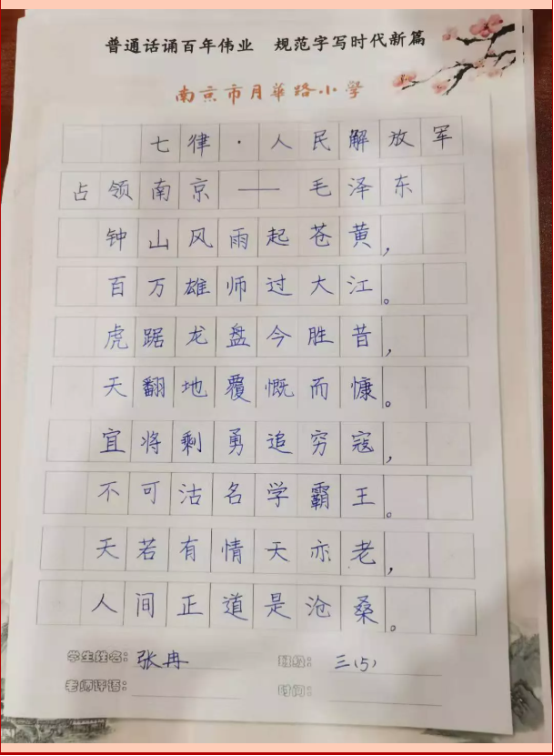 普通话诵百年伟业 规范字写时代新篇
南京市月华路小学
七律·人民解放军
占领南京——毛泽东
钟山风雨起苍黄,
百万雄师过大江。
虎踞龙盘今胜昔,
天翻地覆慨而慷。
宜将剩勇追穷寇,
不可沽名学霸王。
天若有情天亦老,
人间正道是沧桑。
学生姓名: 张冉 班级: 三(5)
老师评语: 时间: